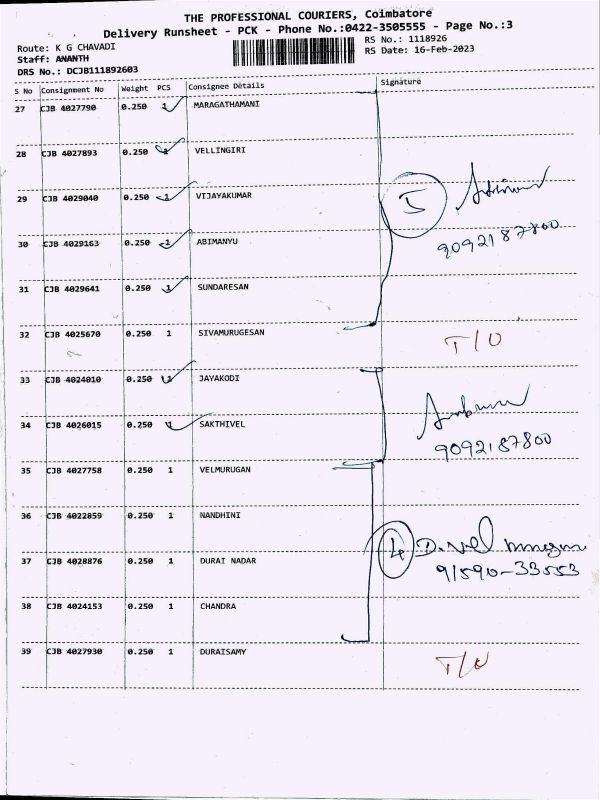 THE PROFESSIONAL COURIERS, Coimbatore
Delivery Runsheet - PCK - Phone No.:0422-3505555 - Page No.:3
Route: K G CHAVADI
RS No.: 1118926
Staff: ANANTH
RS Date: 16-Feb-2023
DRS No.: DCJB111892603
S No Consignment No Weight PCS Consignee Details Signature
27 CJB 4027790 0.250 1 MARAGATHAMANI
28 CJB 4027893 0.250 1 VELLINGIRI
29 CJB 4029040 0.250 1 VIJAYAKUMAR
5
30 CJB 4029163 0.250 1 ABIMANYU
9092187800
31 CJB 4029641 0.250 1 SUNDARESAN
32 CJB 4025670 0.250 1 SIVAMURUGESAN
T/O
33 CJB 4024010 0.250 1 JAYAKODI
34 CJB 4026015 0.250 1 SAKTHIVEL
9092187800
35 CJB 4027758 0.250 1 VELMURUGAN
36 CJB 4022859 0.250 1 NANDHINI
4 D. Vel
37 CJB 4028876 0.250 1 DURAI NADAR
91590-33553
38 CJB 4024153 0.250 1 CHANDRA
39 CJB 4027930 0.250 1 DURAISAMY
T/O